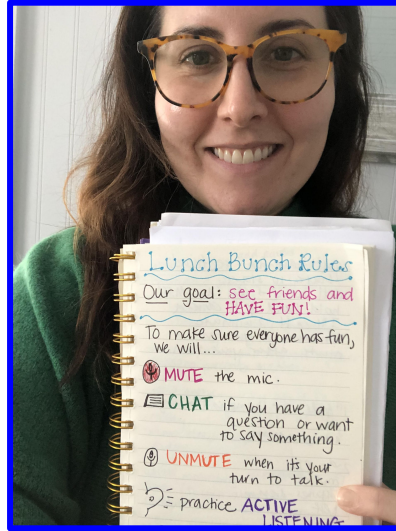 Lunch Bunch Rules
Our goal: see friends and
HAVE FUN!
To make sure everyone has fun,
we will...
MUTE the mic.
CHAT if you have a
question or want
to say something.
UNMUTE when it's your
turn to talk.
practice ACTIVE
LISTENING